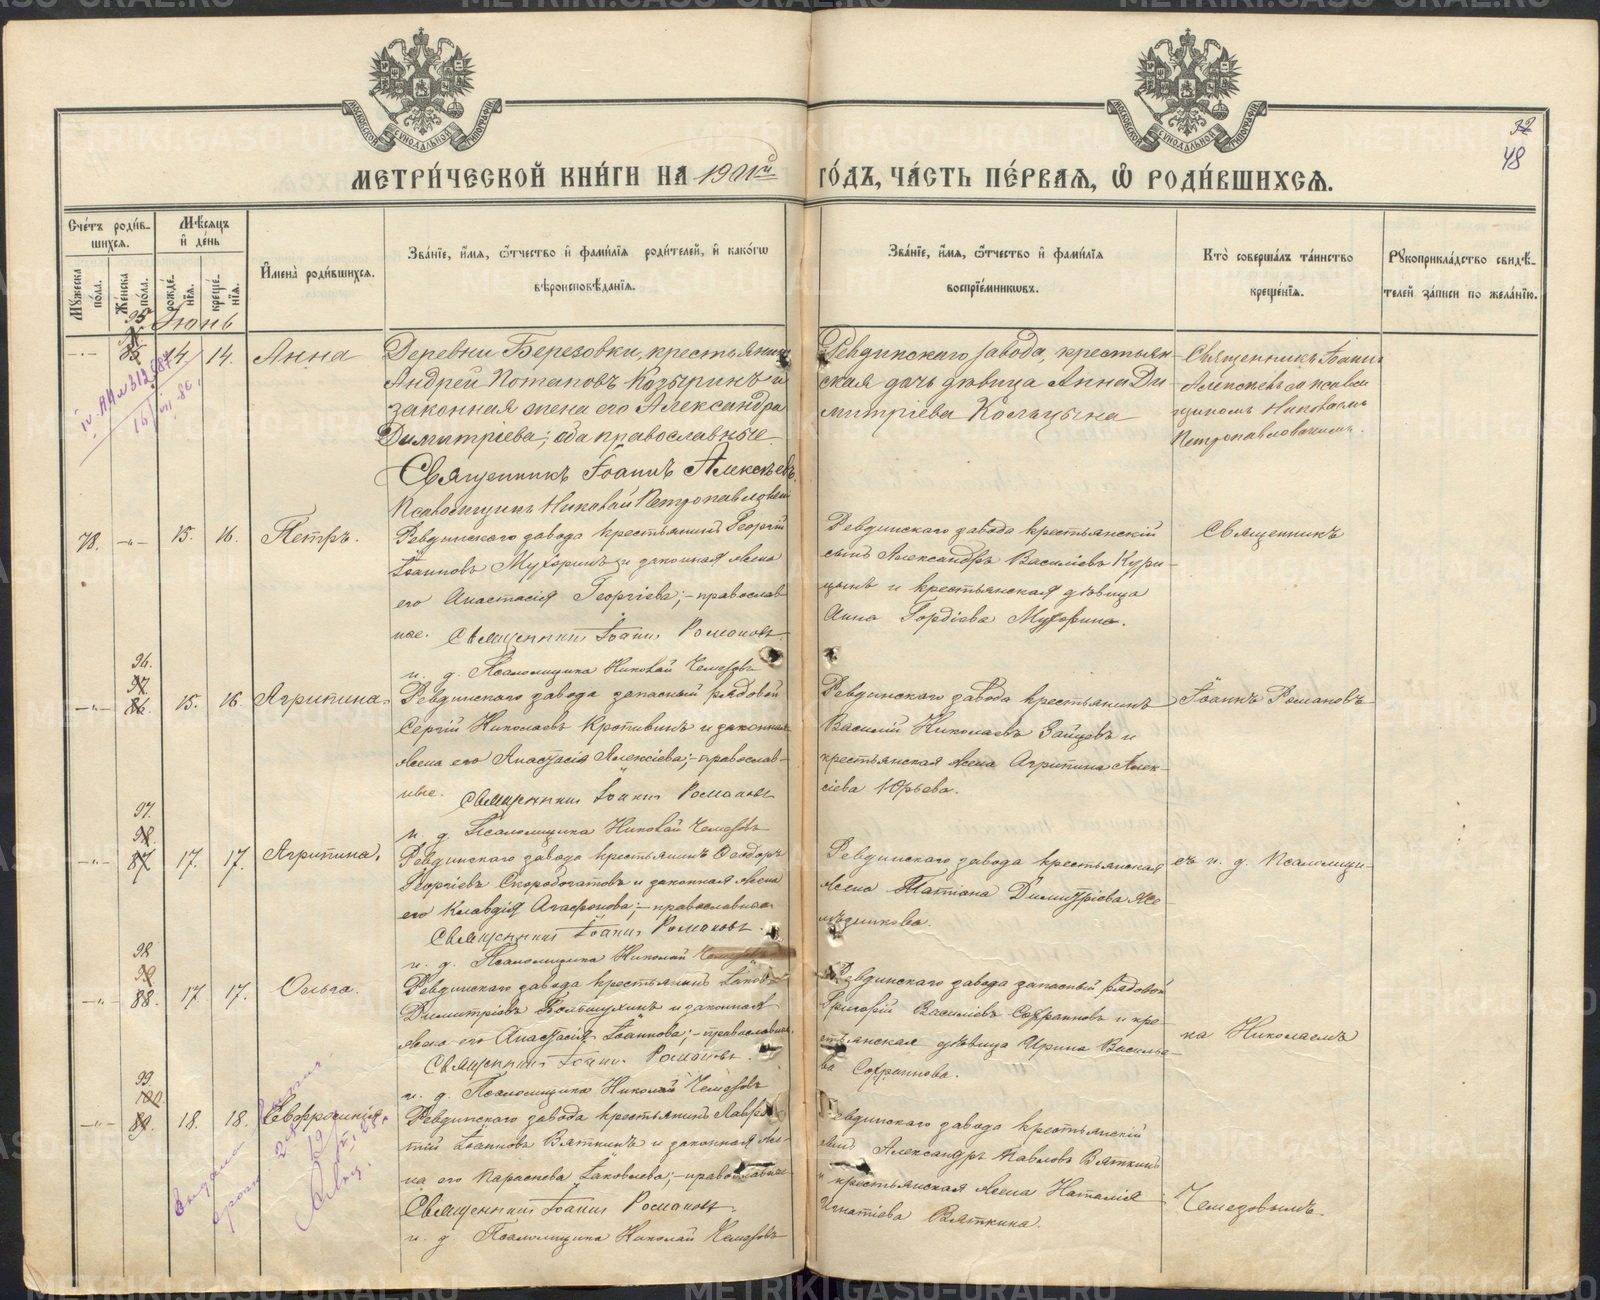 МЕТРИ́ЧЕСКОЙ КНИ́ГИ НА 1901й ГО́ДЪ, ЧА́СТЬ ПЕ́РВАЯ, Ѡ РОДИ́ВШИХСЯ.
32
48
Сче́тъ роди́в-
шихся.
Мѣ́сяцъ
и́ де́нь
Мꙋ́жеска
по́ла.
Же́нска
по́ла.
рожде́-
нїѧ.
креще́-
нїѧ.
И҆мена̀ роди́вшихсѧ.
Зва́нїе, и҆́мѧ, ѻ҆́тчество и҆ фамѝлїѧ роди́телей, и҆ како́гѡ
вѣроисповѣ́данїѧ.
Зва́нїе, и҆́мѧ, ѻ҆́тчество и҆ фамѝлїѧ
воспрїе́мникѡвъ.
Кто̀ соверша́лъ та́инство
креще́нїѧ.
Рꙋкоприкла́дство свидѣ́-
телей за́писи по жела́нїю.
Іюнь
95
85
14
14.
Анна
Деревни Березовки, крестьянинъ
Андрей Потаповъ Козыринъ и
законная жена его Александра
Димитріева; оба православные.
Священникъ Іоаннъ Алексѣевъ
Псаломщикъ Николай Петропавловскій
Ревдинскаго завода, крестьян-
ская дочь дѣвица Анна Ди-
митріева
Священникъ Іоаннъ
Алексѣевъ со псалом-
щикомъ Николаемъ
Петропавловскимъ.
78.
15.
16.
Петръ.
Ревдинскаго завода крестьянинъ Георгій
Іоанновъ Мухоринъ и законная жена
его Анастасія Георгіева;-православ-
ные. Священникъ Іоаннъ Романовъ.
и. д. Псаломщика Николай Чемезовъ
Ревдинскаго завода крестьянскій
сынъ Александръ Василіевъ Кури-
цынъ и крестьянская дѣвица
Анна Гордіева Мухорина.
Священникъ
96.
97.
86.
15.
16.
Агрипина.
Ревдинскаго завода запасный рядовой
Сергій Николаевъ Кропивинъ и законная
жена его Анастасія Алексіева;-православ-
ные. Священникъ Іоаннъ Романовъ
и. д. Псаломщика Николай Чемезовъ
Ревдинскаго завода крестьянинъ
Василій Николаевъ Зайцевъ и
крестьянская жена Агрипина Алек-
сіева Юрьева.
Іоаннъ Романовъ
97.
98.
87
17.
17.
Агрипина.
Ревдинскаго завода крестьянинъ Ѳеодоръ
Георгіевъ Скоробогатовъ и законная жена
его Клавдія Агафонова;-православные
Священникъ Іоаннъ Романовъ.
и. д. Псаломщика Николай Чемезовъ
Ревдинскаго завода крестьянская
жена Татіана Димитріева
съ и. д. псаломщи-
98
99
88.
17
17.
Ольга.
Ревдинскаго завода крестьянинъ Іаковъ
Димитріевъ и законная
жена его Анастасія Іоаннова;-православные.
Священникъ Іоаннъ Романовъ.
и. д. Псаломщика Николай Чемезовъ
Ревдинскаго завода запасный рядовой
Григорій Василіевъ Софроновъ и кре-
стьянская дѣвица Ирина Василье-
ва Софронова.
ка Николаемъ
99.
100
89.
18.
18.
Евфросинія
Ревдинскаго завода крестьянинъ Лаврен-
тій Іоанновъ Вяткинъ и законная же-
на его Параскева Іаковлева;-православные
Священникъ Іоаннъ Романовъ.
и. д. Псаломщика Николай Чемезовъ
Ревдинскаго завода крестьянскій
сынъ Александръ Павловъ Вяткинъ
и крестьянская жена Наталія
Игнатіева Вяткина.
Чемезовымъ.
METRIKI.GASO-URAL.RU